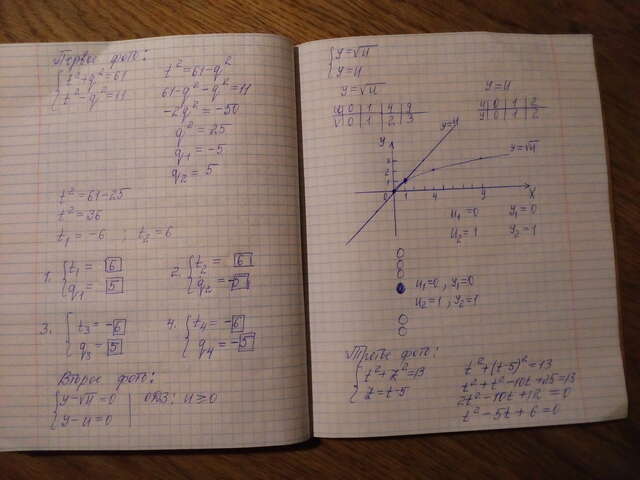 Первое фото:
{t²+q²=61
t²-q²=11
t²=61-q²
61-q²-q²=11
-2q²=-50
q²=25
q1=-5
q2=5
t²=61-25
t²=36
t1=-6 ; t2=6
1. {t1=6
q1=5
2. {t2=6
3. {t3=-6
q3=5
4. {t4=-6
q4=-5
Второе фото:
{y-√u=0 | ОДЗ: u≥0
y-u=0
{y=√u
y=u
y=√u
u 0 1 4 9
0 1 2 3
y=u
u 0 1 2
y 0 1 2
y
y=u
y=√u
3
2
1
0 1 4 9 x
u1=0 y1=0
u2=1 y2=1
u1=0 , y1=0
u2=1 ; y2=1
Третье фото:
{t²+z²=13
z=t-5
t²+(t-5)²=13
t²+t²-10t+25=13
2t²-10t+12=0
t²-5t+6=0